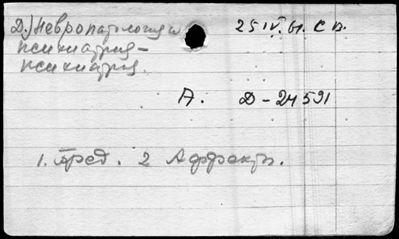 Д.) Невропатология и
психиатрия –
психиатрия.
25 IV. 61.
А. Д – 24591
1. Пред. 2 Аффекты.